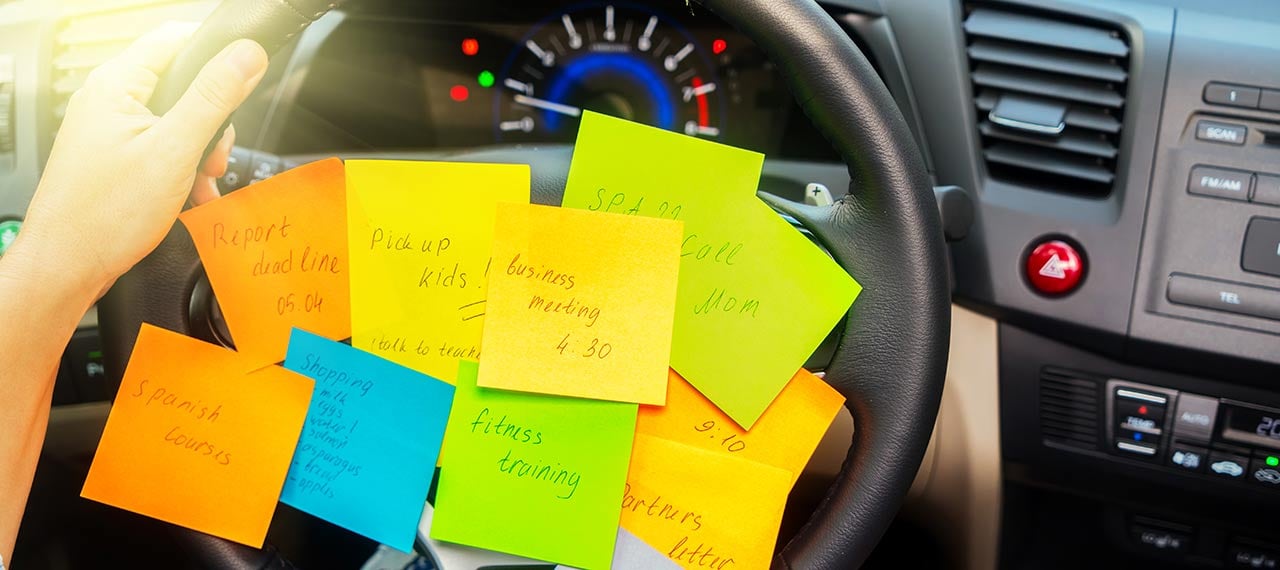 Report
deadline
05.04
Pick up
kids!
(talk to teach
business
meeting
4:30
SPA ??
Call
Mom
Spanish
courses
Shopping
milk
eggs
water!
salmon
asparagus
- bread
- apples
fitness
training
9:10
Partners
letter
SCAN
FM/AM
TEL
TEMP
AUTO